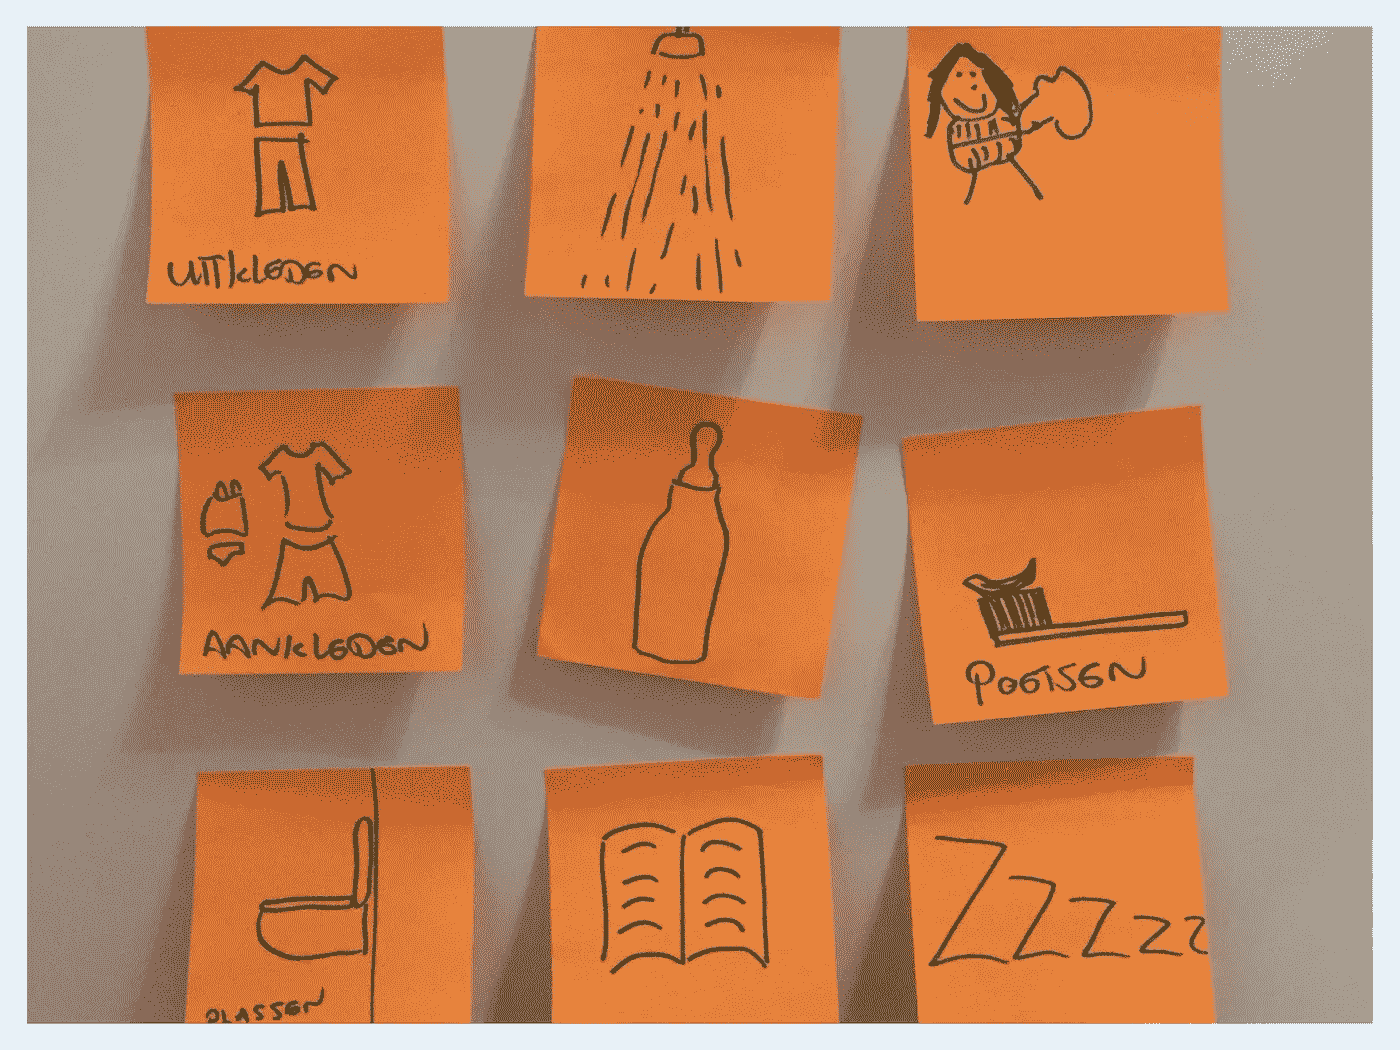 UITKLEDEN
AANKLEDEN
POETSEN
PLASSEN
ZZZZZ